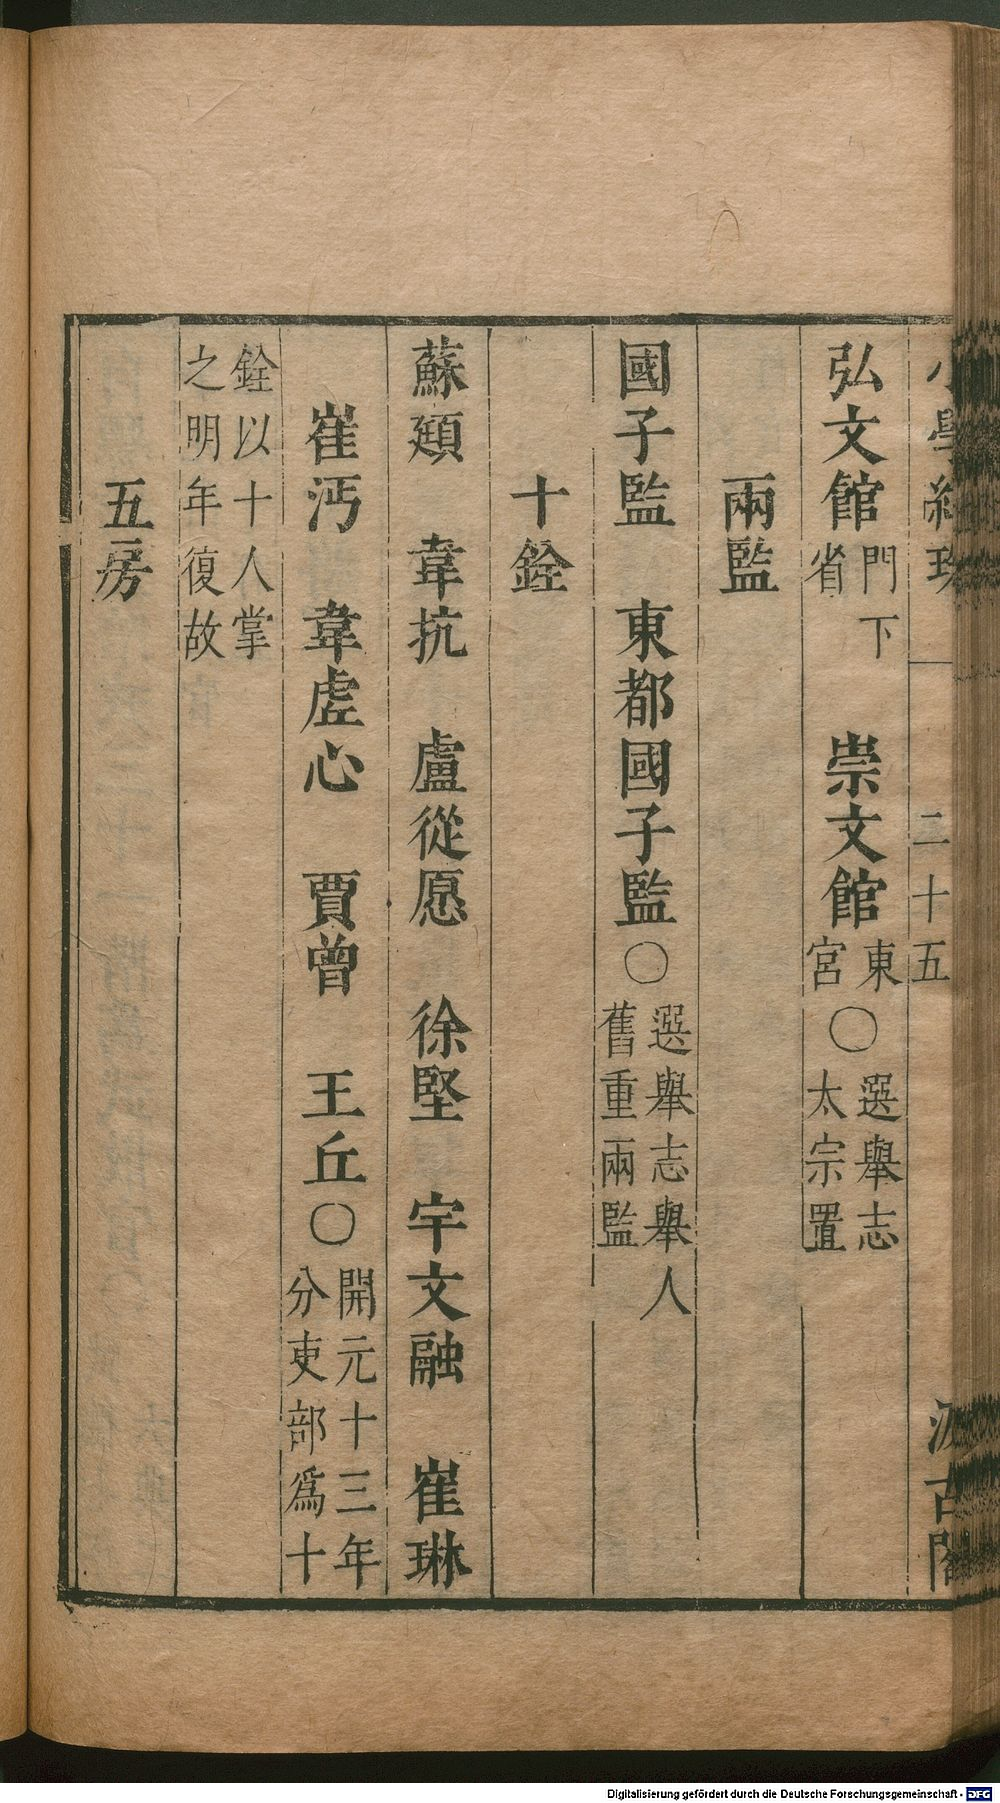 小學紺珠 二十五 汲古閣
弘文館 門下省 崇文館 東宮〇選舉志太宗置
兩監
國子監 東都國子監〇選舉志舉人舊重兩監
十銓
蘇頲 韋抗 盧從愿 徐堅 宇文融 崔琳
崔沔 韋虗心 賈曾 王丘〇開元十三年分吏部爲十
銓以十人掌之明年復故
五房
Digitalisierung gefördert durch die Deutsche Forschungsgemeinschaft - DFG